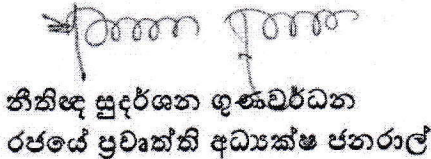 නීතිඥ සුදර්ශන ගුණවර්ධන
රජයේ ප්‍රවෘත්ති අධ්‍යක්ෂ ජනරාල්